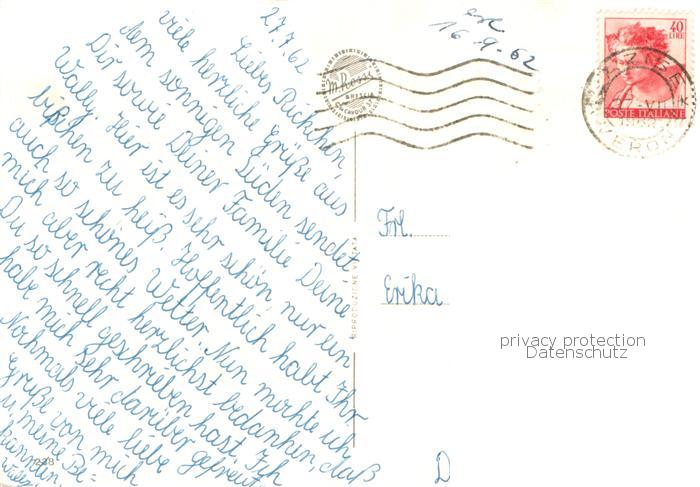 27.7.62
Liebes Rickchen,
viele herzliche Grüße aus
dem sonnigen Süden sendet
Dir sowie Deiner Familie Deine
Wally. Hier ist es sehr schön, nur ein
bißchen zu heiß. Hoffentlich habt Ihr
auch so schönes Wetter. Nun möchte ich
mich aber recht herzlichst bedanken, daß
Du so schnell geschrieben hast. Ich
habe mich sehr darüber gefreut.
Nochmals viele liebe
Grüße von mich
u. meine Be-
kannten.
Wally
16.9.62
40
LIRE
POSTE ITALIANE
M. Rossi
BRESCIA
Frl.
Erika
D
RIPRODUZIONE VIETATA
privacy protection
Datenschutz